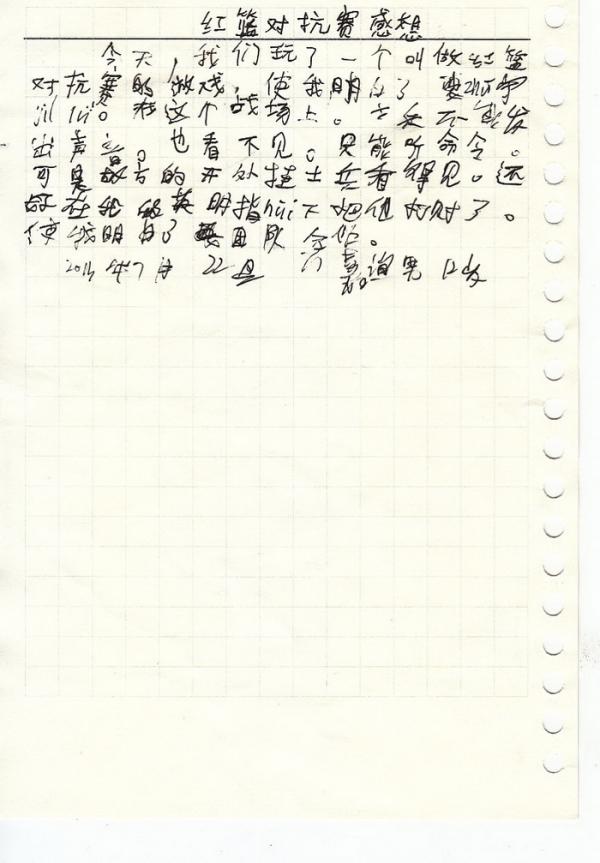 红篮对抗赛感想
今天,我们玩了一个叫做红篮
对抗赛的游戏,使我明白了要
。在这个战场上。士兵不能发
出声音。也看不见。只能听命令。
可是敌方的开外挂士兵看得见。还
好在我的英明指 下把他打财了。
使我明白了 团队合作。
2014年7月22日 12岁